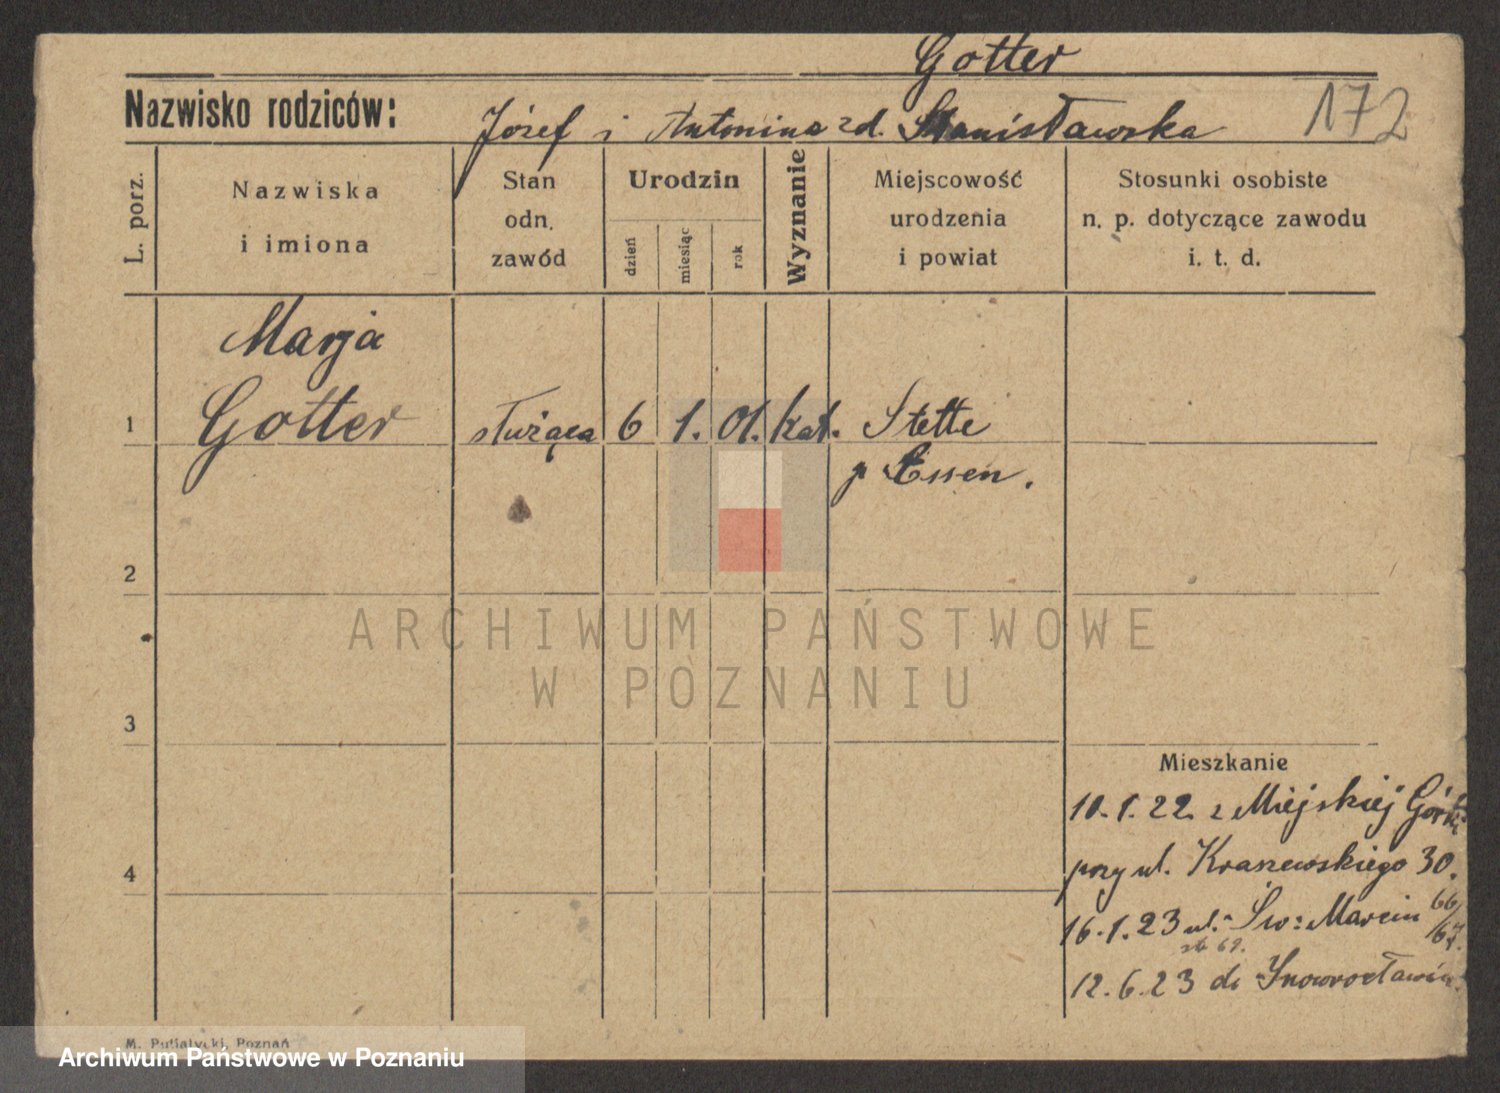 Gotter
Nazwisko rodziców: Józef i Antonina zd. Stanisławska
172
L. porz.
Nazwiska
i imiona
Stan
odn.
zawód
Urodzin
dzień
miesiąc
rok
Wyznanie
Miejscowość
urodzenia
i powiat
Stosunki osobiste
n. p. dotyczące zawodu
i. t. d.
Marja
1 Gotter służąca 6 1. 01. kat. Stelle
p Essen.
2
3
4
Mieszkanie
10.1.22. z Miejskiej Górki
przy ul. Kraszewskiego 30.
16.1.23 ul. Św: Marcin 66/67.
12.6.23 do Inowrocławia
M. Putiatycki, Poznań
ARCHIWUM PAŃSTWOWE
W POZNANIU
Archiwum Państwowe w Poznaniu